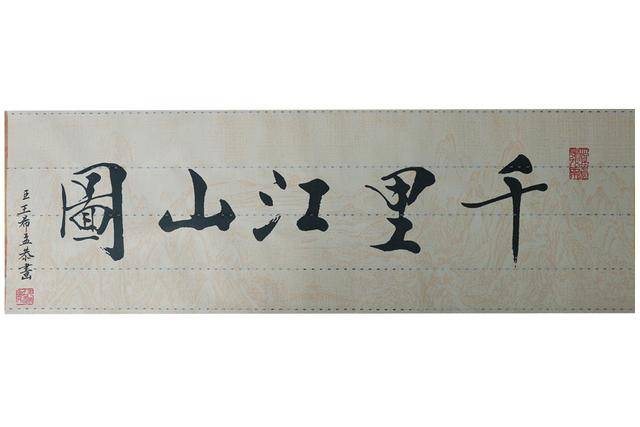 千里江山圖
臣王希孟恭畫